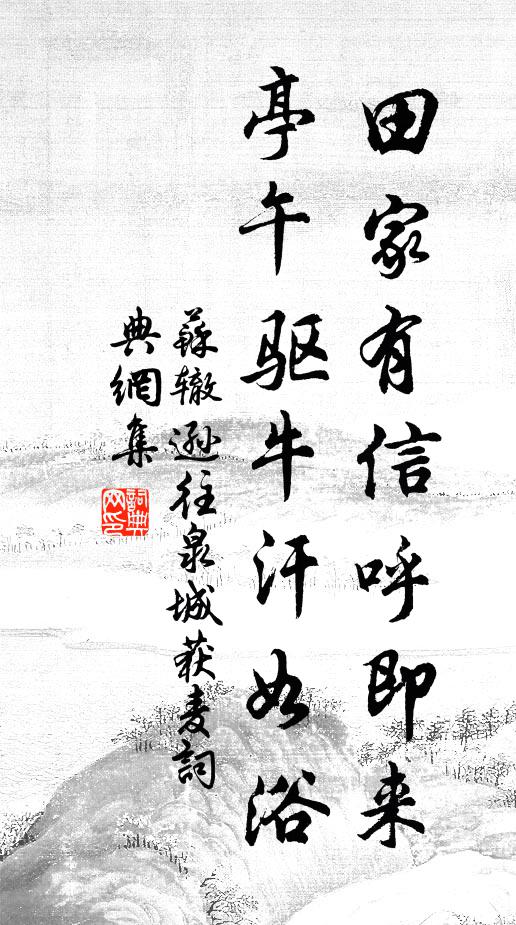 田家有信呼即来
亭午驱牛汗如浴
蘇辙逊往泉城获麦詞
典網集
詞典网印